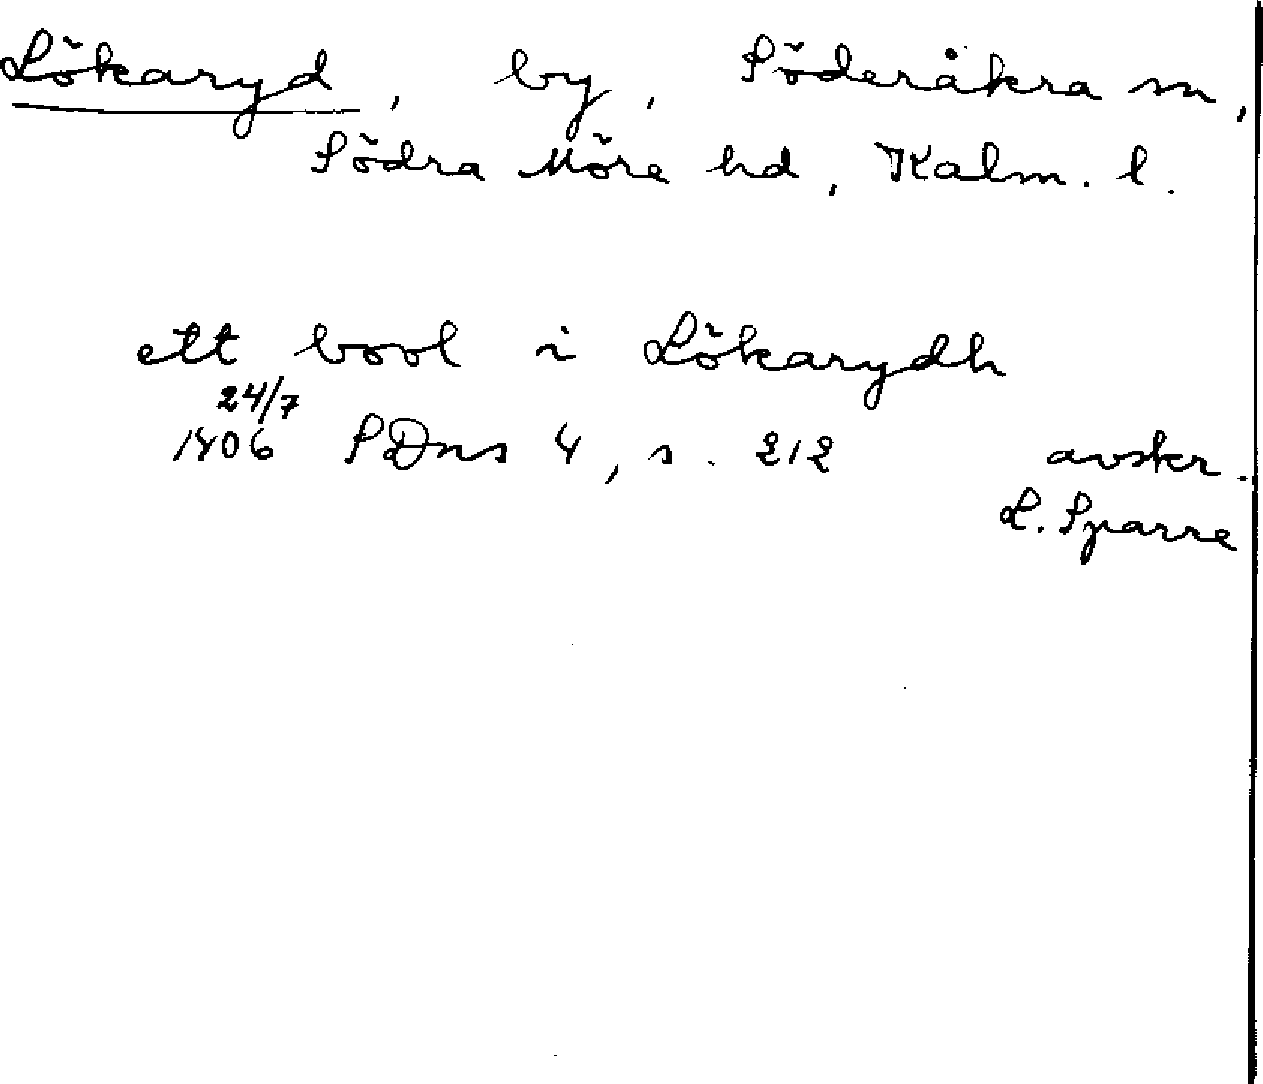 Lökaryd, by, Söderåkra sn,
Södra Möre hd, Kalm. l.
ett bool i Lökarydh
24/7
1406 SDns 4, s. 212 avskr.
L. Sparre